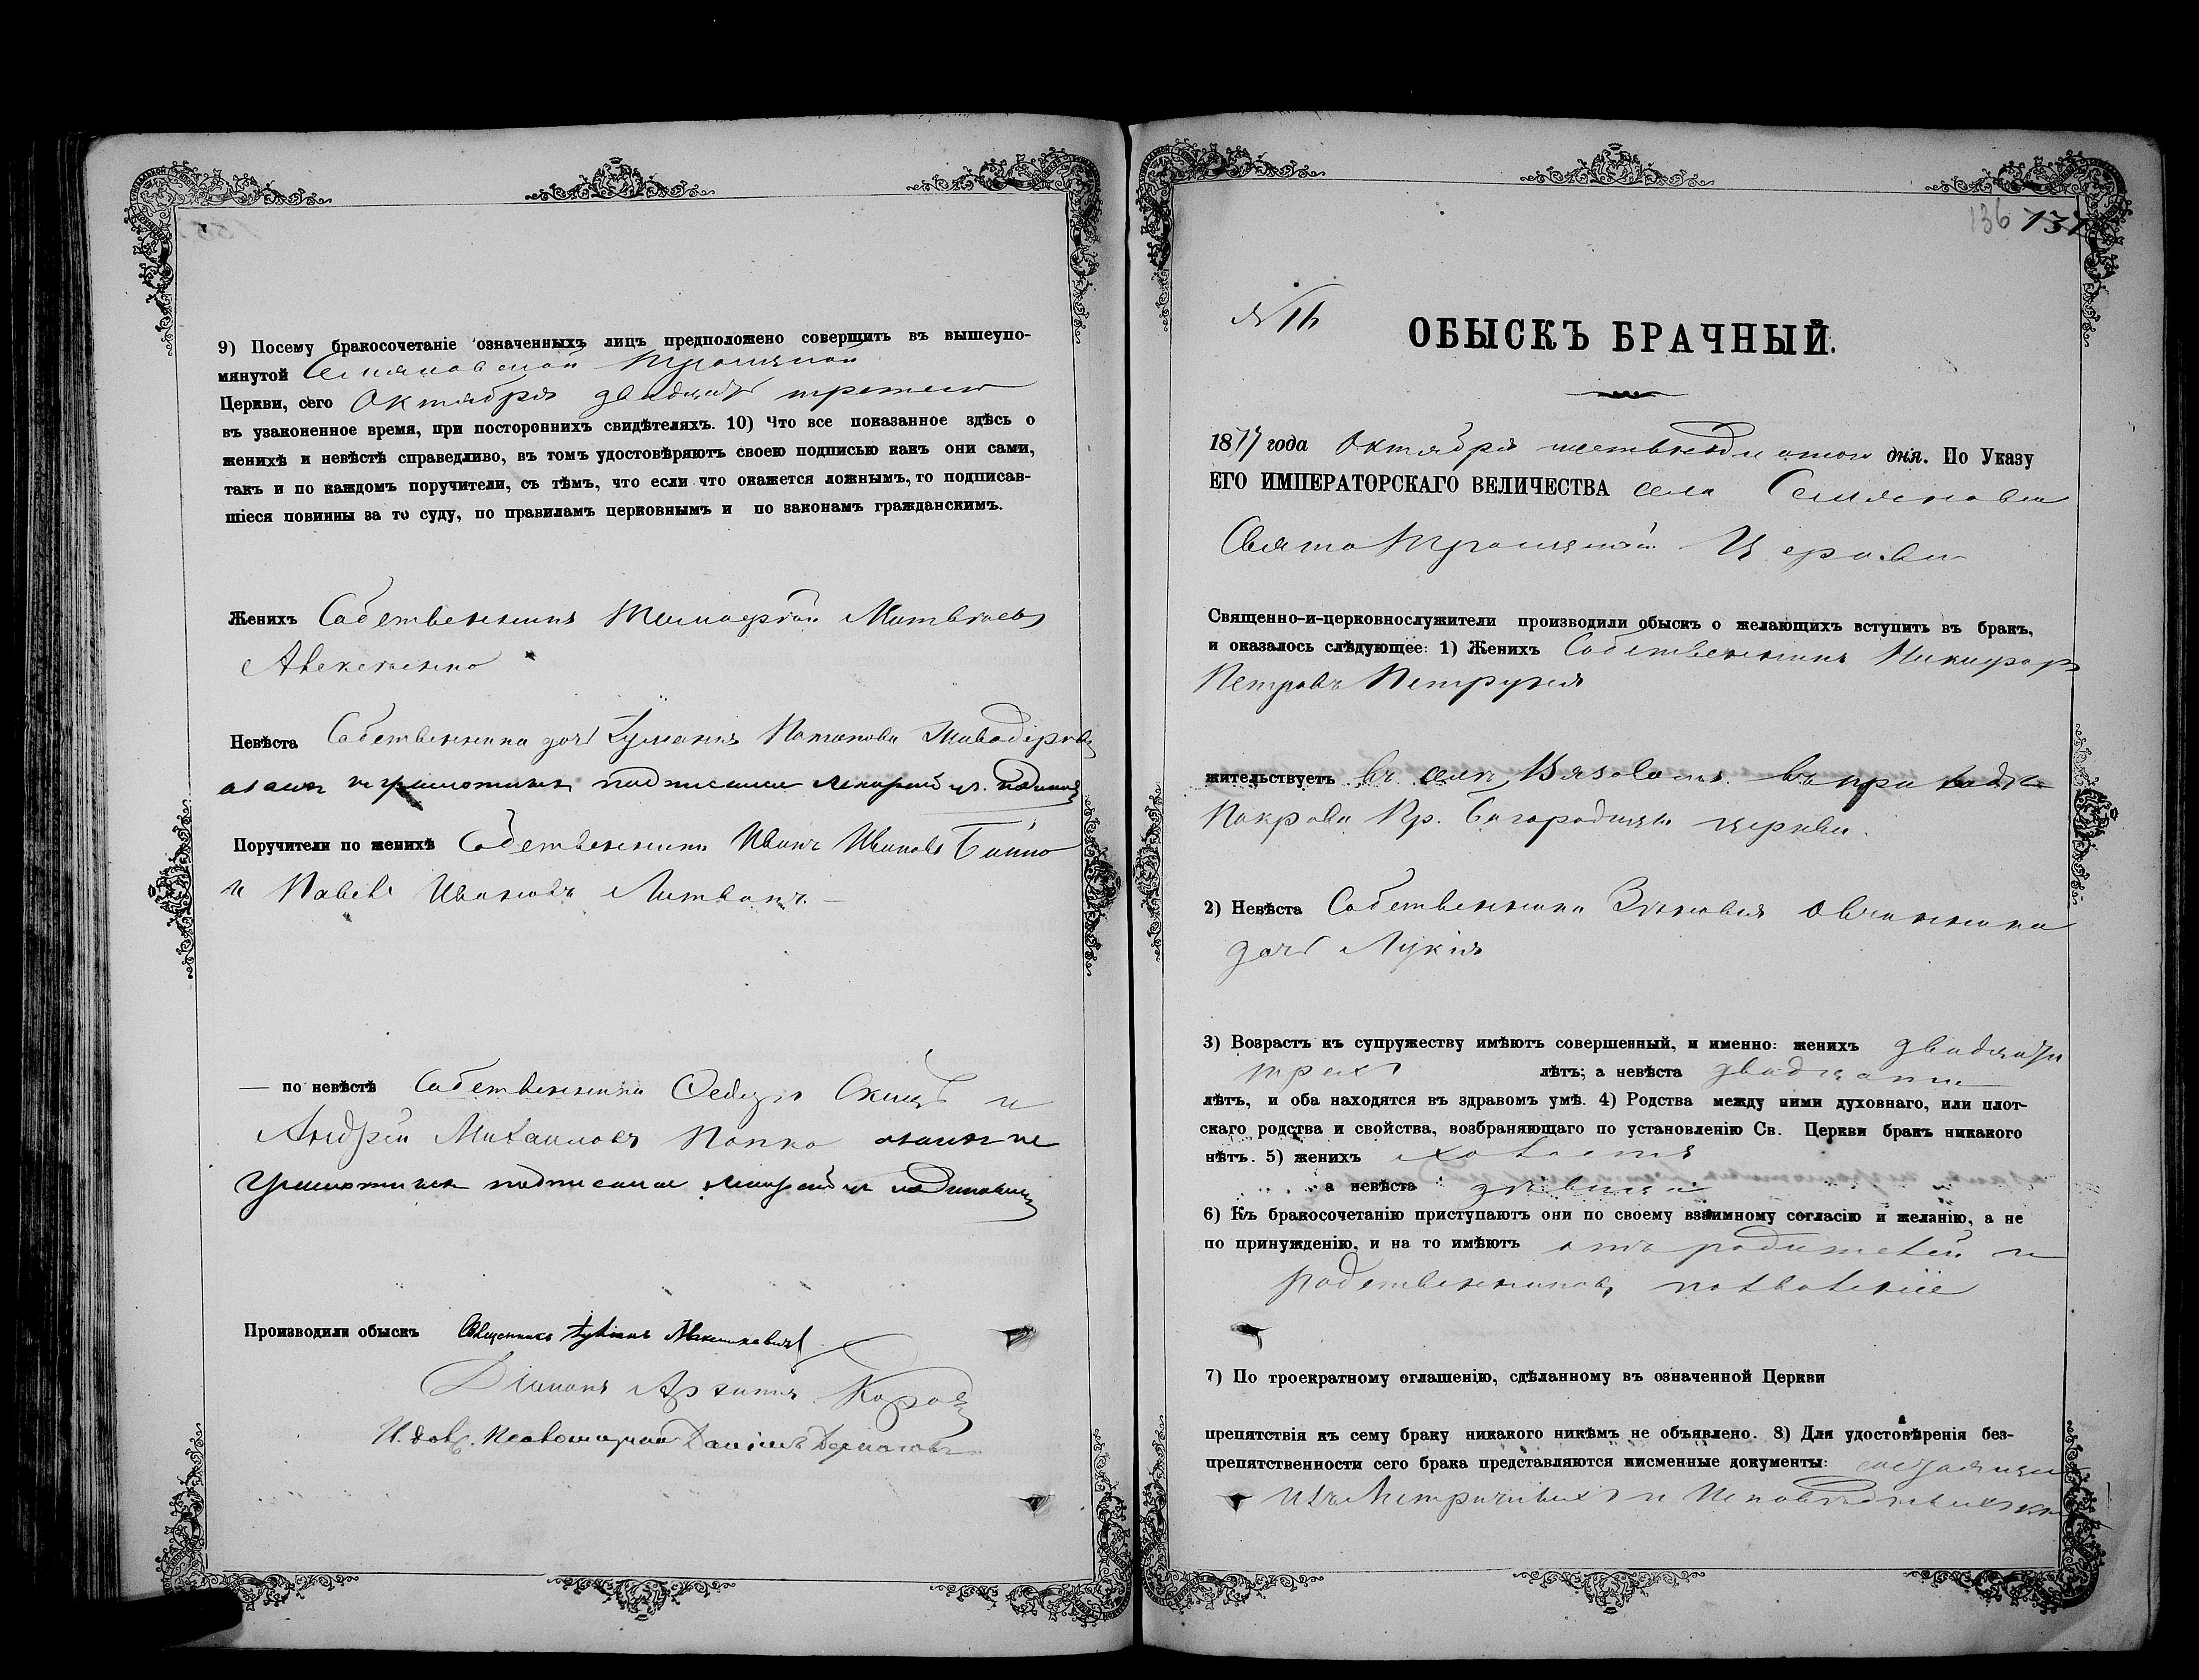 9) Посему бракосочетаніе означенныхъ лицъ предположено совершить въ вышеупо-
мянутой Семяновской Троицкой
Церкви, сего Октября двадцать третьего
въ узаконенное время, при постороннихъ свидѣтеляхъ. 10) Что все показанное здѣсь о
женихѣ и невѣстѣ справедливо, въ томъ удостовѣряютъ своею подписью какъ они сами,
такъ и по каждомъ поручители, съ тѣмъ, что если что окажется ложнымъ, то подписав-
шіеся повинны за то суду, по правиламъ церковнымъ и по законамъ гражданскимъ.
Женихъ Собственникъ Тимофей Матвѣевъ
Невѣста Собственника дочь Потапова
неграмотны подписался
Поручители по женихѣ Собственники Иванъ Ивановъ
и Павелъ Ивановъ Литванъ
— по невѣстѣ Собственники и
Андрей Михаиловъ Попко а за ихъ не
грамотныхъ подписался
Производили обыскъ Священникъ
Діаконъ
Псаломщикъ Даніилъ
136 137
№ 16
ОБЫСКЪ БРАЧНЫЙ.
1877 года Октября шестьнадцатого дня. По Указу
ЕГО ИМПЕРАТОРСКАГО ВЕЛИЧЕСТВА села Семяновки
Свято Троицкой Церкви
Священно-и-церковнослужители производили обыскъ о желающихъ вступить въ бракъ,
и оказалось слѣдующее: 1) Женихъ Собственникъ Никифоръ
Петровъ Петручя
жительствуетъ въ селѣ Вязовомъ въ приходѣ
Покрова Пр. Богородицы церкви.
2) Невѣста Собственника Зѣновія Овчинника
дочь Лукія
3) Возрастъ къ супружеству имѣютъ совершенный, и именно: женихъ двадцати
трехъ лѣтъ; а невѣста двадцати
лѣтъ, и оба находятся въ здравомъ умѣ. 4) Родства между ними духовнаго, или плот-
скаго родства и свойства, возбраняющаго по установленію Св. Церкви бракъ никакого
нѣтъ. 5) женихъ холостъ
а невѣста дѣвица
6) Къ бракосочетанію приступаютъ они по своему взаимному согласію и желанію, а не
по принужденію, и на то имѣютъ отъ родителей и
родственниковъ позволеніе
7) По троекратному оглашенію, сдѣланному въ означенной Церкви
препятствія къ сему браку никакого никѣмъ не объявлено. 8) Для удостовѣренія без-
препятственности сего брака представляются письменные документы:
изъ Метрическихъ и Исповѣдныхъ кн